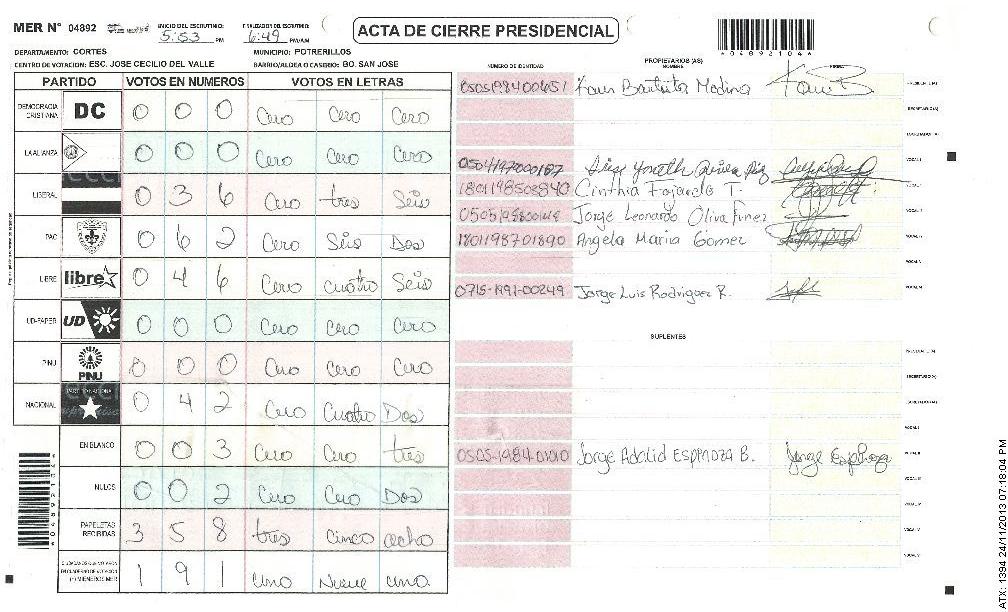 MER N° 04892 INICIO DEL ESCRUTINIO: 5:53 PM FINALIZACION DEL ESCRUTINIO: 6:49 PM/AM
ACTA DE CIERRE PRESIDENCIAL
*04892104*
DEPARTAMENTO: CORTES MUNICIPIO: POTRERILLOS
CENTRO DE VOTACION: ESC. JOSE CECILIO DEL VALLE BARRIO/ALDEA O CASERIO: BO. SAN JOSE
PARTIDO VOTOS EN NUMEROS VOTOS EN LETRAS
DEMOCRACIA CRISTIANA DC 0 0 0 Cero Cero Cero
LA ALIANZA 0 0 0 Cero Cero Cero
LIBERAL 0 3 6 Cero tres Seis
PAC 0 6 2 Cero Seis Dos
LIBRE libre 0 4 6 Cero cuatro Seis
UD-FAPER UD 0 0 0 Cero Cero Cero
PINU PINU 0 0 0 Cero Cero Cero
NACIONAL 0 4 2 Cero Cuatro Dos
EN BLANCO 0 0 3 Cero Cero tres
NULOS 0 0 2 Cero Cero Dos
PAPELETAS RECIBIDAS 3 5 8 tres cinco ocho
CIUDADANOS QUE VOTARON EN CUADERNO DE VOTACION (+) MIEMBROS MER 1 9 1 uno Nueve uno
NUMERO DE IDENTIDAD PROPIETARIOS (AS) NOMBRE FIRMA
0505198400651 Bautista Medina
0504197000187
1801198503840 Cinthia Fajardo T.
Jorge Leonardo Oliva Funez
1801198701890 Angela Maria Gomez
0715-1991-00249 Jorge Luis Rodriguez R.
SUPLENTES
0505-1984-01010 Jorge Adalid ESPINOZA B. Jorge Espinoza
*04892104*
ATX: 1394 24/11/2013 07:18:04 PM